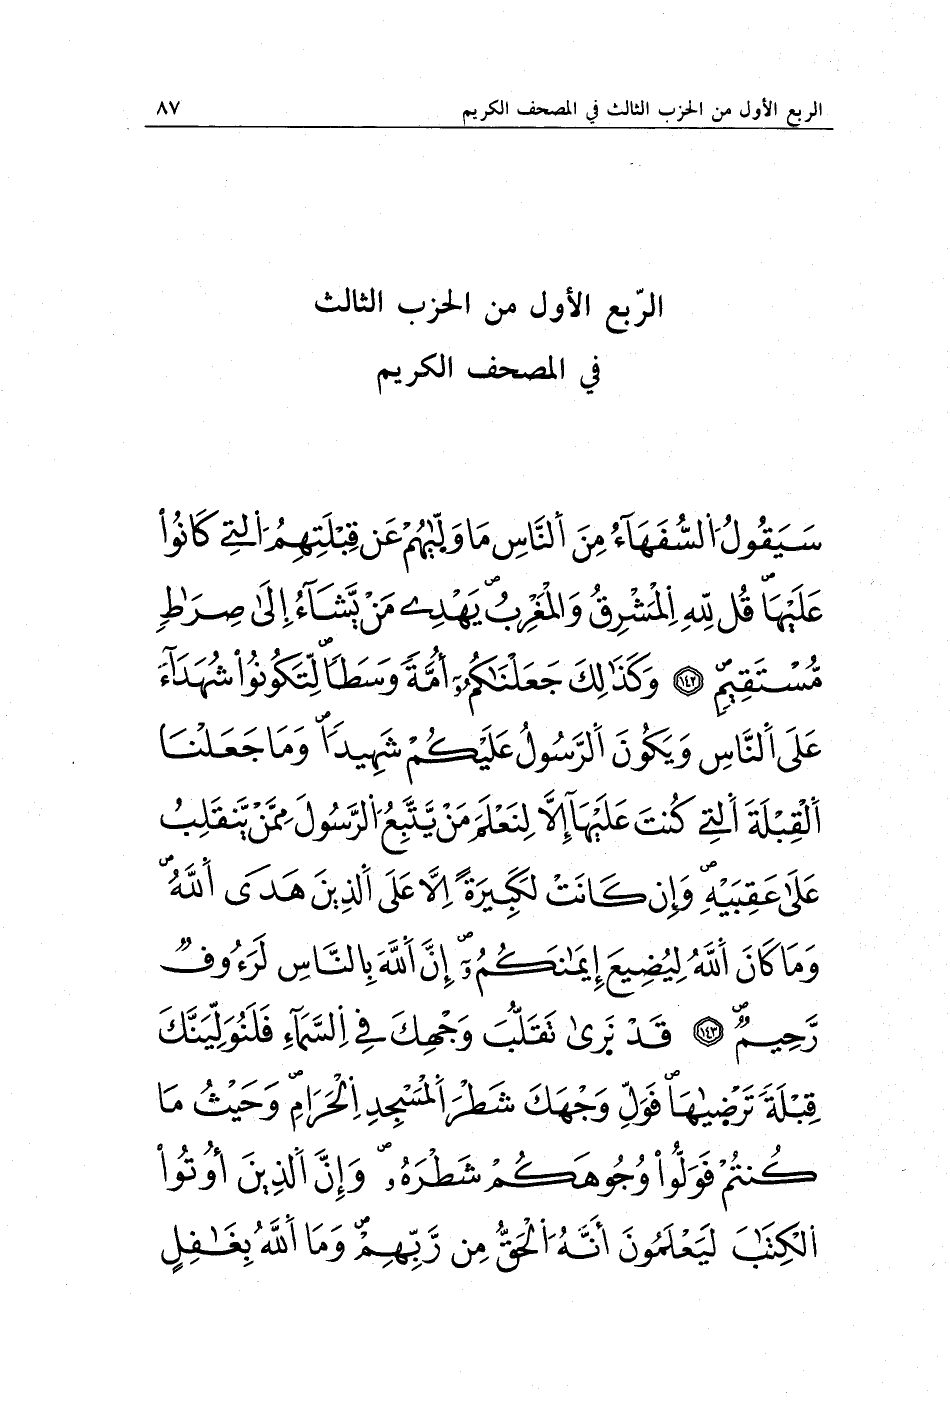 الربع الأول من الحزب الثالث في المصحف الكريم ٨٧
الرّبع الأول من الحزب الثالث
في المصحف الكريم
سَيَقُولُ اُ۬لسُّفَهَآءُ مِنَ اَ۬لنَّاسِ مَا وَلّ۪يٰهُمْ عَن قِبْلَتِهِمُ اُ۬لتِے كَانُواْ
عَلَيْهَاۖ قُل لِّلهِ اِ۬لْمَشْرِقُ وَالْمَغْرِبُۖ يَهْدِے مَنْ يَّشَآءُ اِ۪لَىٰ صِرَٰطٖ
مُّسْتَقِيمٖۖ ١٤٢ وَكَذَٰلِكَ جَعَلْنَٰكُمُۥٓ أُمَّةٗ وَسَطاٗۖ لِّتَكُونُواْ شُهَدَآءَ
عَلَى اَ۬لنَّاسِ وَيَكُونَ اَ۬لرَّسُولُ عَلَيْكُمْ شَهِيداٗۖ وَمَا جَعَلْنَا
اَ۬لْقِبْلَةَ اَ۬لتِے كُنتَ عَلَيْهَآ إِلَّا لِنَعْلَمَ مَنْ يَّتَّبِعُ اُ۬لرَّسُولَ مِمَّنْ يَّنقَلِبُ
عَلَىٰ عَقِبَيْهِۖ وَإِن كَانَتْ لَكَبِيرَةً اِلَّا عَلَى اَ۬لذِينَ هَدَى اَ۬للَّهُۖ
وَمَا كَانَ اَ۬للَّهُ لِيُضِيعَ إِيمَٰنَكُمُۥٓۖ إِنَّ اَ۬للَّهَ بِالنَّاسِ لَرَءُوفٞ
رَّحِيمٞۖ ١٤٣ قَدْ نَر۪ىٰ تَقَلُّبَ وَجْهِكَ فِے اِ۬لسَّمَآءِ فَلَنُوَلِّيَنَّكَ
قِبْلَةٗ تَرْض۪يٰهَاۖ فَوَلِّ وَجْهَكَ شَطْرَ اَ۬لْمَسْجِدِ اِ۬لْحَرَامِۖ وَحَيْثُ مَا
كُنتُمْ فَوَلُّواْ وُجُوهَكُمْ شَطْرَهُۥۖ وَإِنَّ اَ۬لذِينَ أُوتُواْ
اُ۬لْكِتَٰبَ لَيَعْلَمُونَ أَنَّهُ اُ۬لْحَقُّ مِن رَّبِّهِمْۖ وَمَا اَ۬للَّهُ بِغَٰفِلٍ